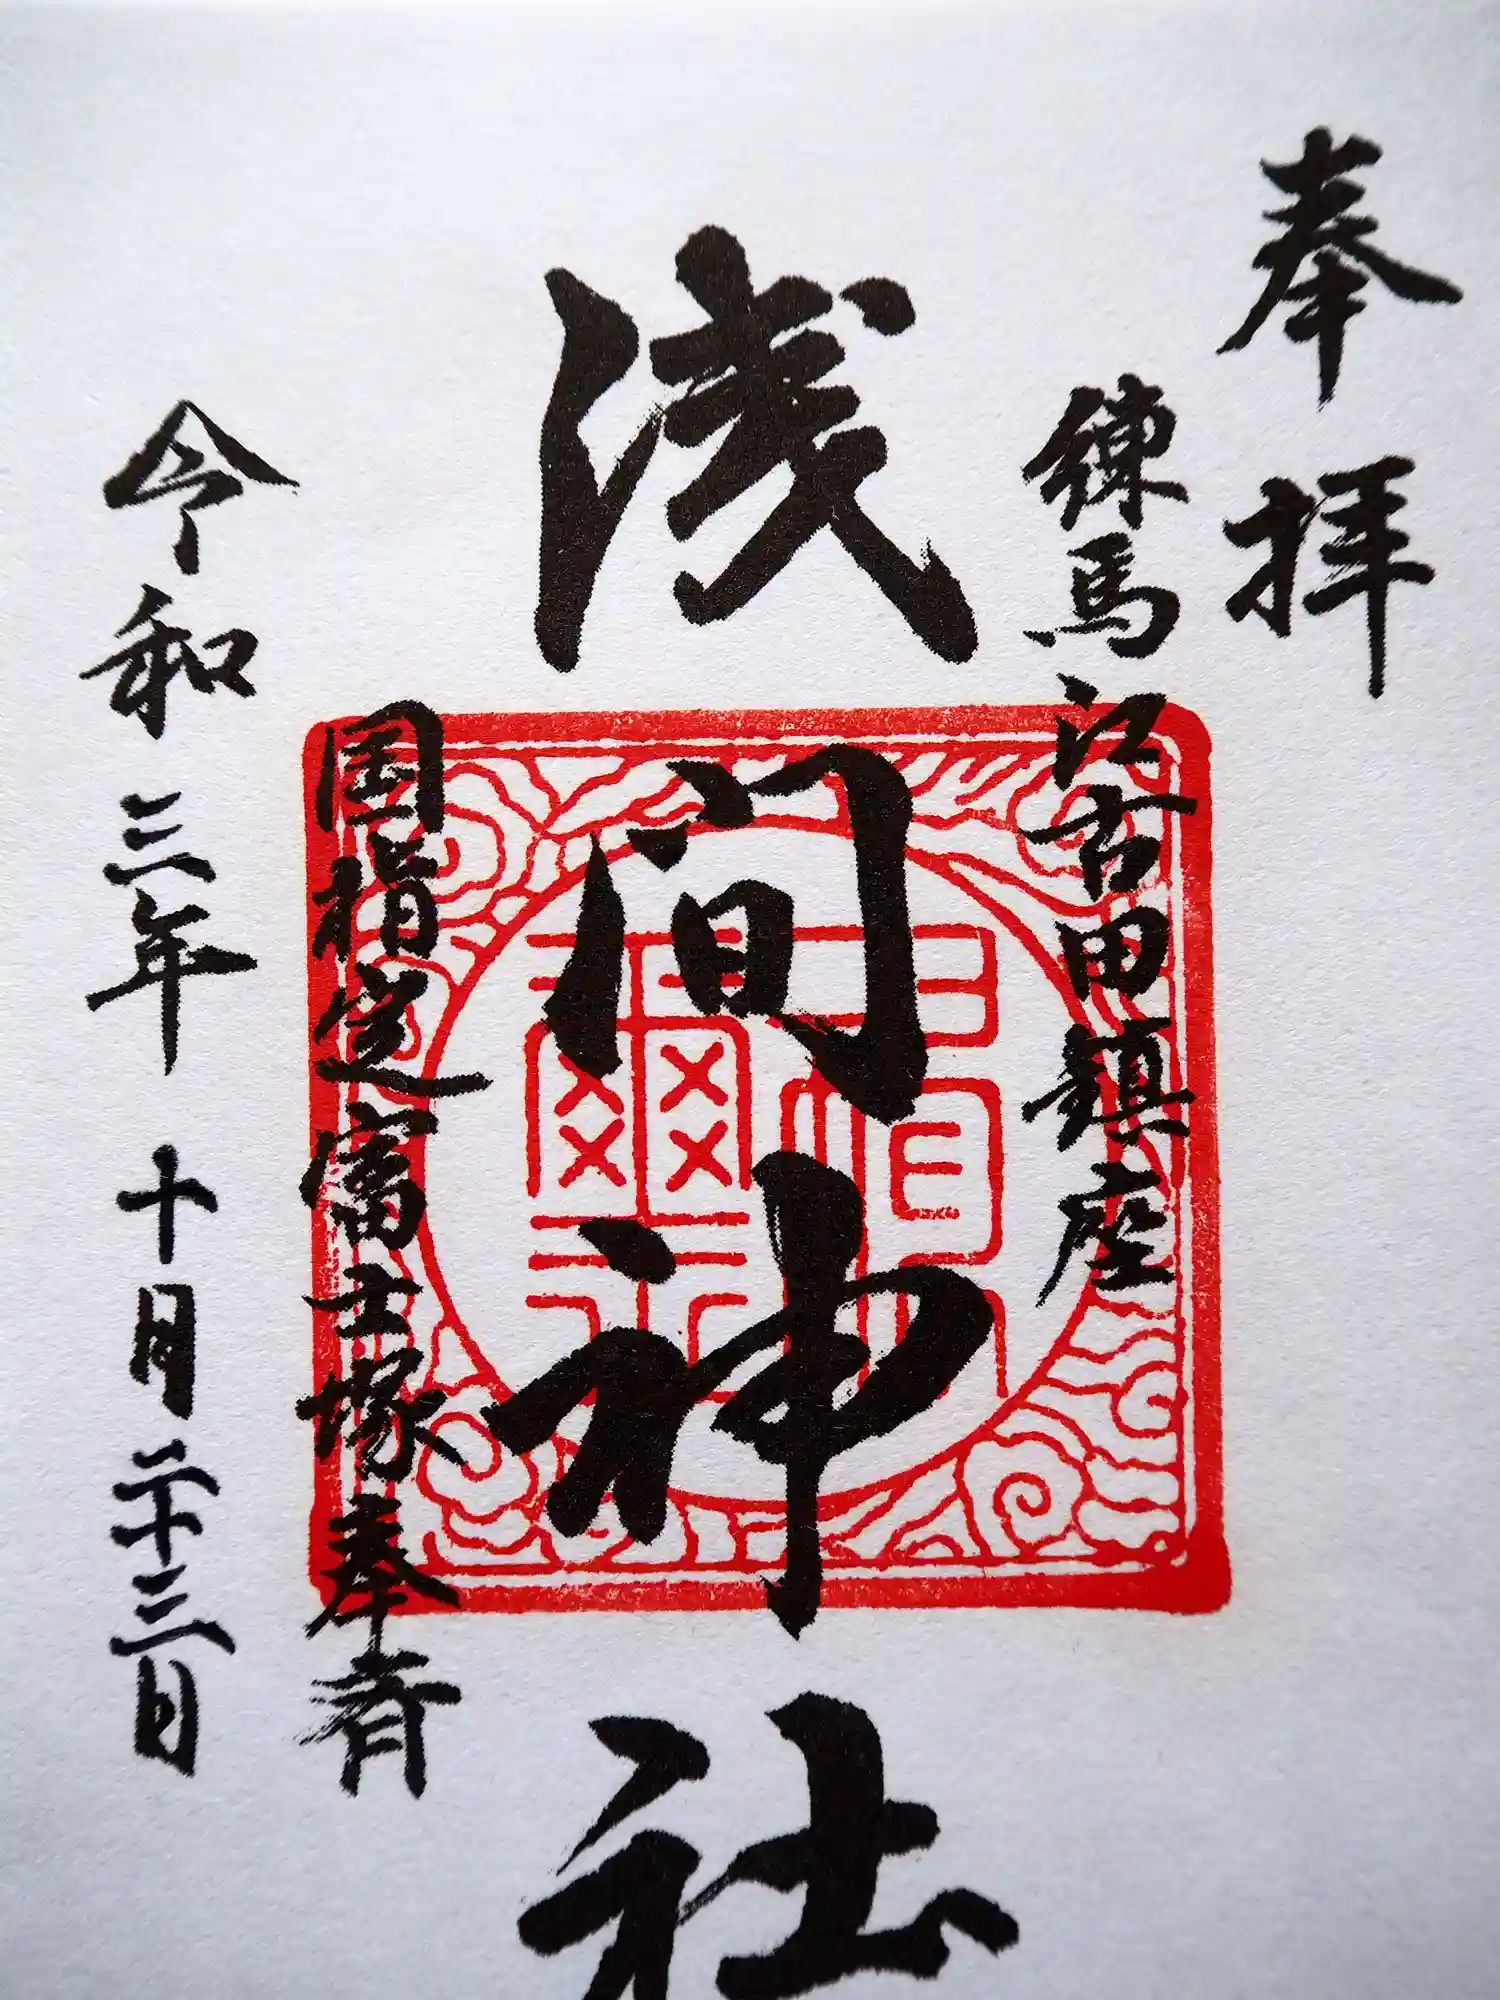 奉拝
練馬江古田鎮座
浅間神社
国指定富士塚奉斎
令和三年十月二十三日